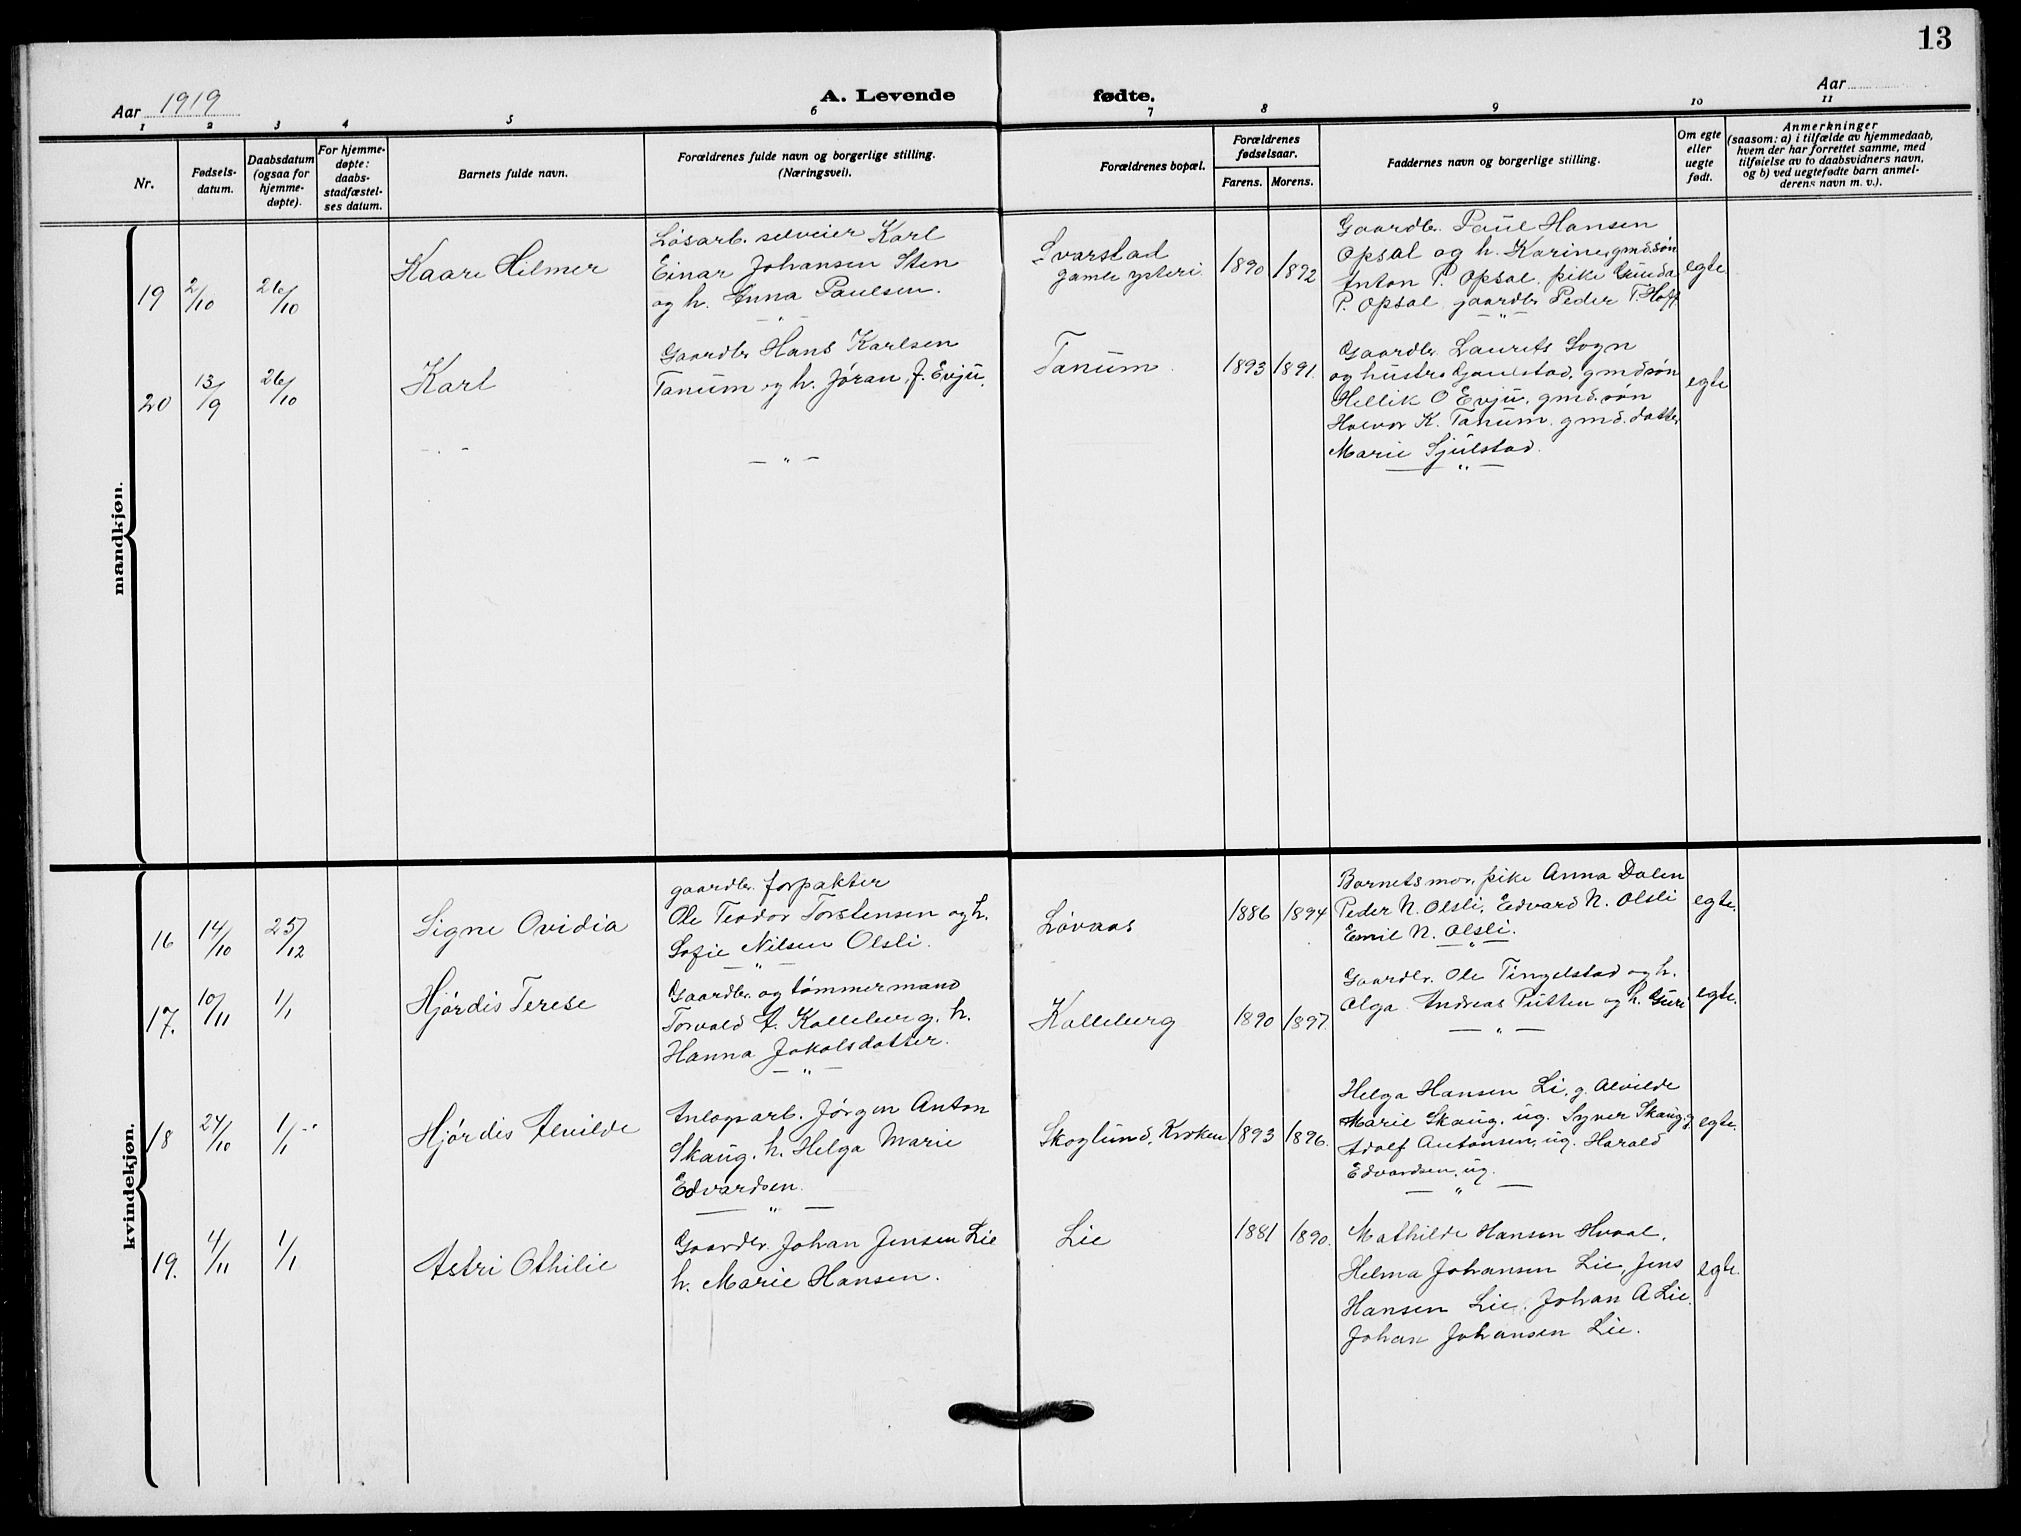 13
Aar 1919
A. Levende fødte.
Aar
1 2 3 4 5 6 7 8 9 10 11
Nr.
Fødsels-
datum.
Daabsdatum
(ogsaa for
hjemme-
døpte).
For hjemme-
døpte:
daabs-
stadfæstel-
ses datum.
Barnets fulde navn.
Forældrenes fulde navn og borgerlige stilling.
(Næringsvei).
Forældrenes bopæl.
Forældrenes
fødselsaar.
Farens. Morens.
Faddernes navn og borgerlige stilling.
Om egte
eller
uegte
født.
Anmerkninger
(saasom: a) i tilfælde av hjemmedaab,
hvem der har forrettet samme, med
tilføielse av to daabsvidners navn,
og b) ved uegtefødte barn anmel-
derens navn m. v.).
mandkjøn.
19
2/10
26/10
Kaare Hilmer
Løsarb. selveier Karl
Einar Johansen Sten
og h. Anna Paulsen.
Svarstad
gamle ysteri
1890 1892
Gaardbr. Paul Hansen
Opsal og h. Karine, gmd.søn
Anton P. Opsal. pike Gunda
P. Opsal gaardbr. Peder T. Hoff
egte
20
13/9
26/10
Karl
Gaardbr Hans Karlsen
Tanum og h. Jøran, f. Evju.
Tanum.
1893 1891.
Gaardbr. Laurits Sogn
og hustru, gmd.søn
Hellik O Evju, gmd.søn
Halvor K. Tanum. gmd. datter
Marie Sjulstad.
egte
kvindekjøn.
16
14/10
25/12
Signe Ovidia
gaardbr. forpakter
Ole Teodor Torstensen og h.
Sofie Nilsen Olsli.
Løvaas
1886 1894
Barnets mor, pike Anna Dalen
Peder N. Olsli, Edvard N. Olsli
Emil N. Olsli.
egte.
17.
10/11
1/1
Hjørdis Terese
Gaardbr. og tømmermand
Torvald A. Kolleberg. h.
Hanna Jakobsdatter.
Kolleberg
1890 1897
Gaardbr. Ole Tingelstad og h.
Olga. Andreas Putten og h. Guri
egte.
18
24/10
1/1
Hjørdis Alvilde
Anlægsarb. Jørgen Anton
Skaug. h. Helga Marie
Edvardsen.
Skoglund, Kroken
1893 1896.
Helga Hansen Li, g. Alvilde
Marie Skaug, ug. Syver Skaug, g
Adolf Antonsen, ug. Harald
Edvardsen, ug.
egte.
19.
4/11
1/1
Astri Othilie
Gaardbr. Johan Jensen Lie
h. Marie Hansen.
Lie
1881 1890.
Mathilde Hansen Hvaal,
Helma Johansen Lie, Jens
Hansen Lie. Johan A Lie.
Johan Johansen Lie.
egte.